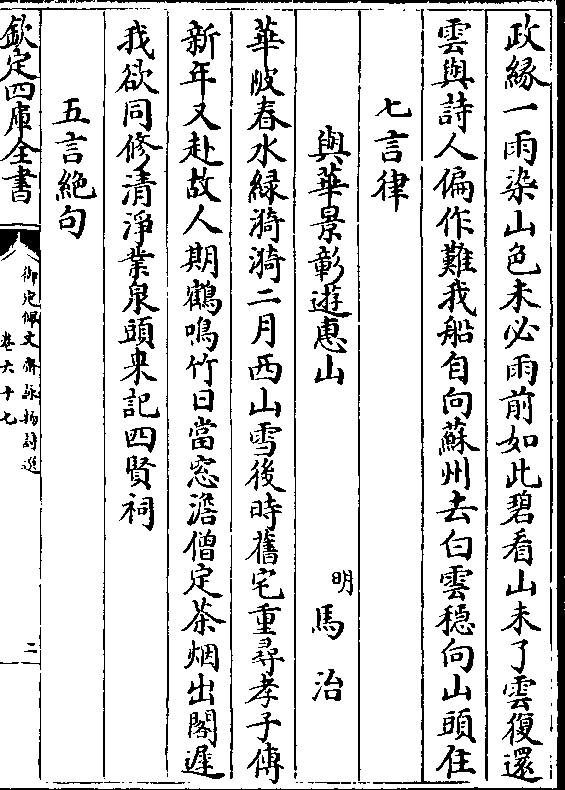 政縁一雨染山色未必雨前如此碧看山未了雲復還
雲與詩人偏作難我船自向蘇州去白雲穩向山頭住
七言律
與華景彰遊惠山
明 馬治
華陂春水緑漪漪二月西山雪後時舊宅重尋孝子傳
新年又赴故人期鶴鳴竹日當窓澹僧定茶烟出閣遲
我欲同修清淨業泉頭來記四賢祠
五言絶句
欽定四庫全書
御定佩文齋詠物詩選
卷六十七
二